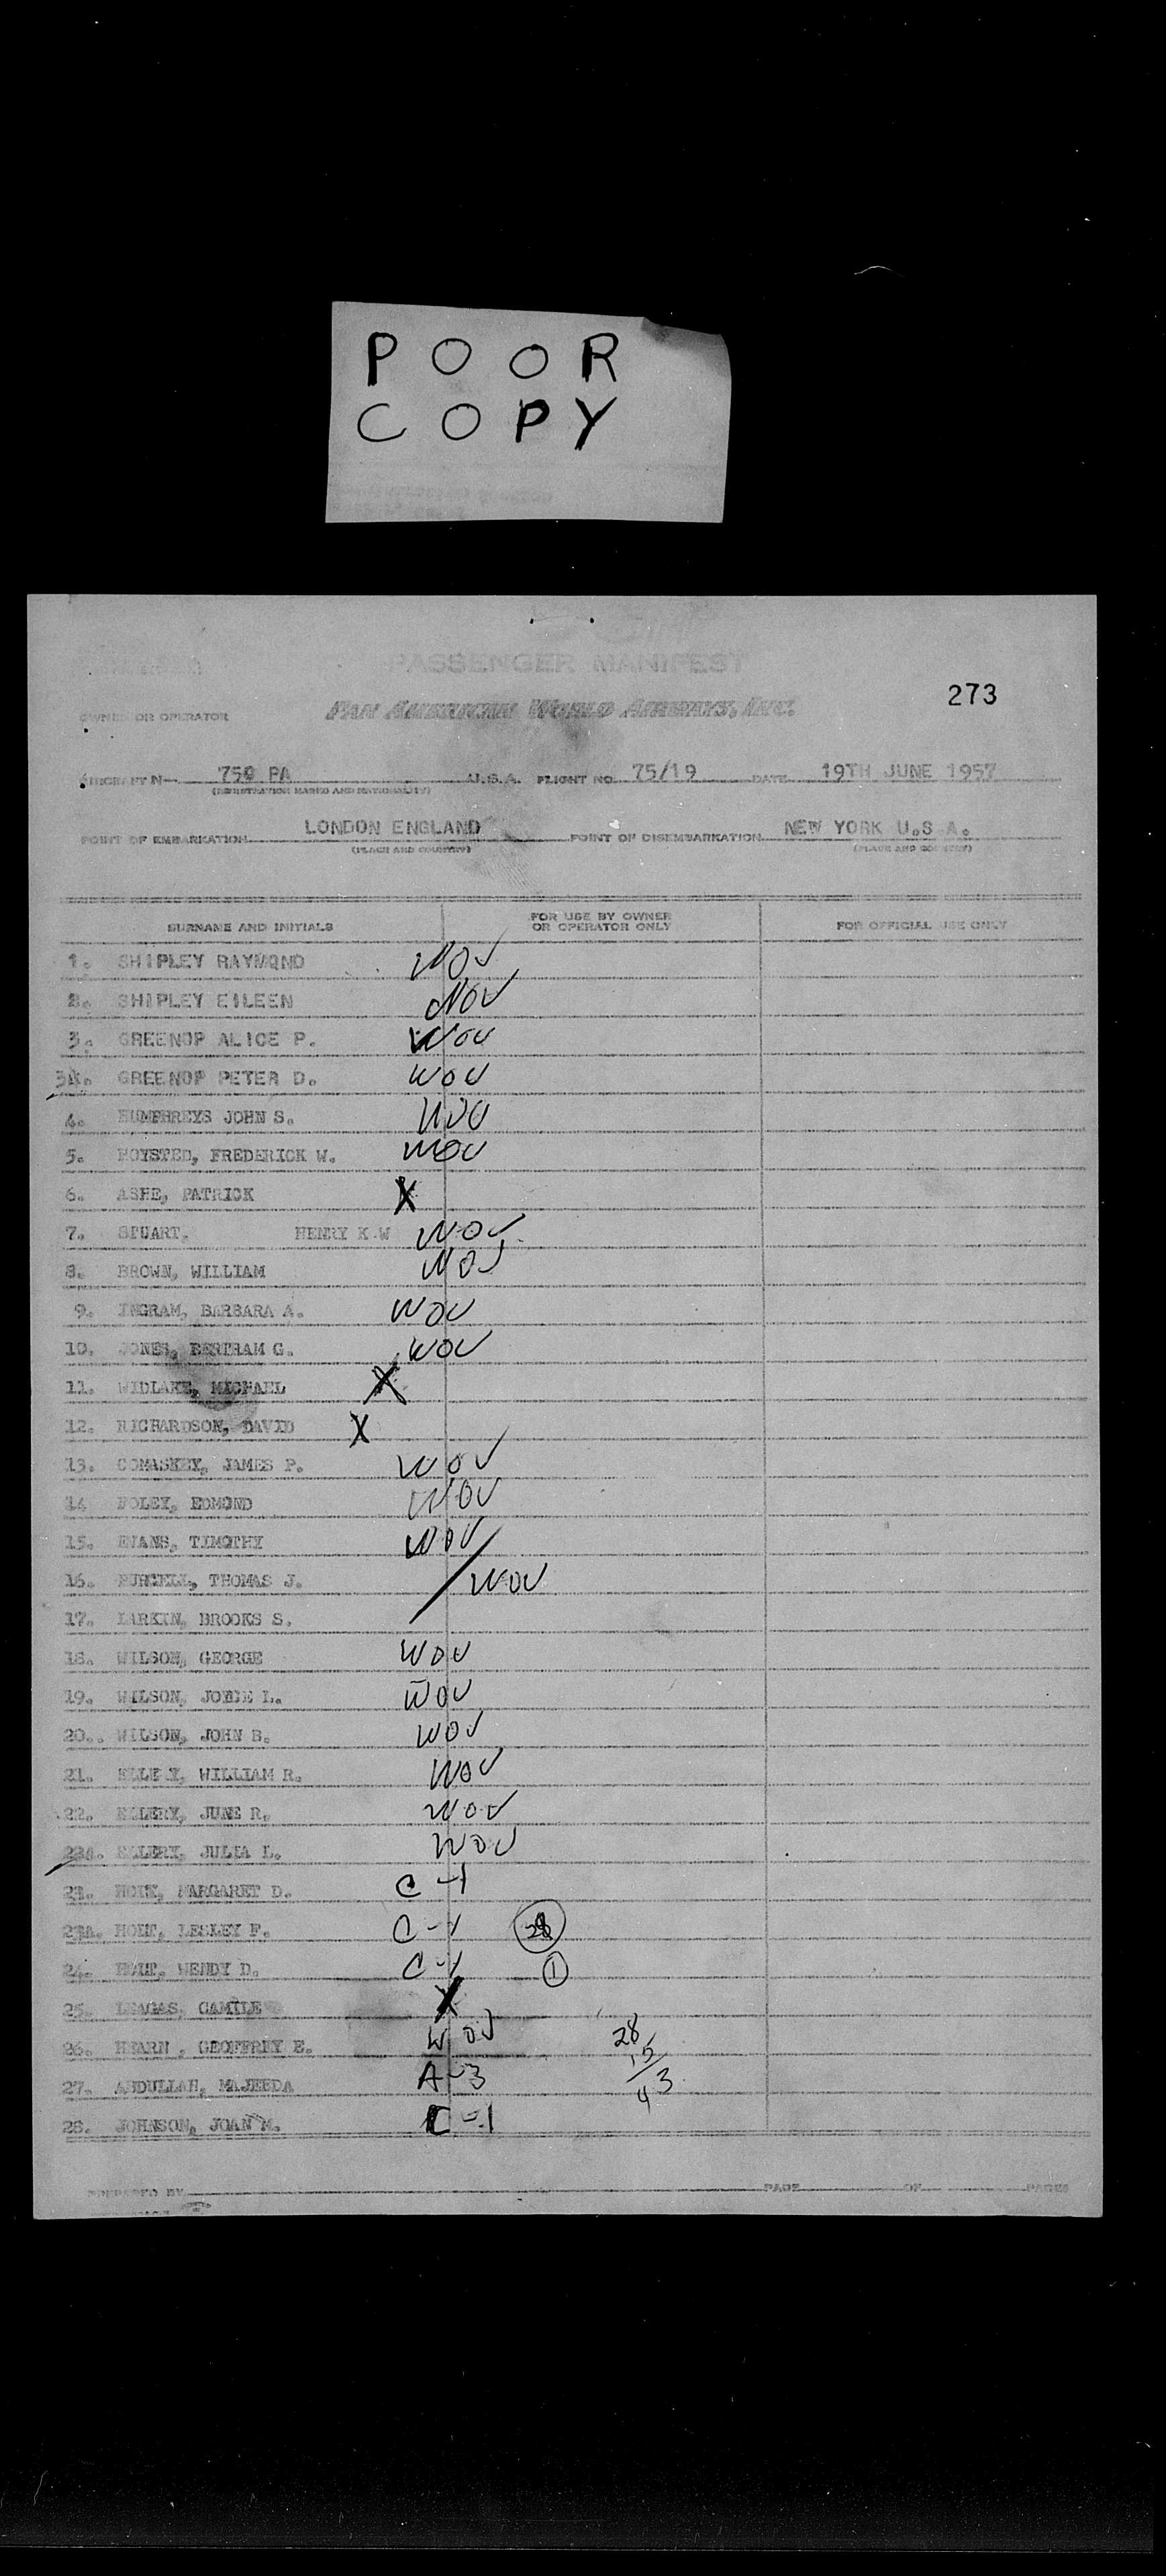 POOR
COPY
PASSENGER MANIFEST
273
OWNER OR OPERATOR PAN AMERICAN WORLD AIRWAYS, INC.
AIRCRAFT N— 750 PA U.S.A. FLIGHT NO. 75/19 DATE 19TH JUNE 1957
(REGISTRATION MARKS AND NATIONALITY)
POINT OF EMBARKATION LONDON ENGLAND POINT OF DISEMBARKATION NEW YORK U.S.A.
(PLACE AND COUNTRY) (PLACE AND COUNTRY)
SURNAME AND INITIALS FOR USE BY OWNER OR OPERATOR ONLY FOR OFFICIAL USE ONLY
1. SHIPLEY RAYMOND WOV
2. SHIPLEY EILEEN WOV
3. GREENOP ALICE P. WOV
3A. GREENOP PETER D. WOV
4. HUMPHREYS JOHN S. WOV
5. HOYSTED, FREDERICK W. WOV
6. ASHE, PATRICK X
7. STUART, HENRY K.W WOV
8. BROWN, WILLIAM WOV
9. INGRAM, BARBARA A. WOV
10. JONES, BERTRAM G. WOV
11. WIDLAKE, MICHAEL X
12. RICHARDSON, DAVID X
13. COMASKEY, JAMES P. WOV
14 FOLEY, EDMOND WOV
15. EVANS, TIMOTHY WOV
16. PURCELL, THOMAS J. WOV
17. LARKIN, BROOKS S.
18. WILSON, GEORGE WOV
19. WILSON, L. WOV
20. WILSON, JOHN B. WOV
21. ELLERY, WILLIAM R. WOV
22. ELLERY, JUNE R. WOV
22A. ELLERY, JULIA L. WOV
23. MARGARET D. C-1
23A. LESLEY F. C-1
24. WENDY D. C-1 1
25. CAMILE X
26. HEARN, GEOFFREY E. WOV 28
15
27. ABDULLAH, MAJEEDA A-3 43
28. JOHNSON, JOAN M. C-1
PREPARED BY PAGE OF PAGES